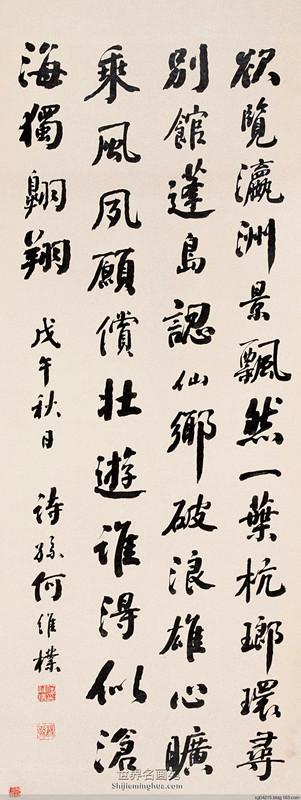 欲覽瀛洲景飄然一葉杭瑯環尋
別館蓬島認仙鄉破浪雄心曠
乘風夙願償壯遊誰得似滄
海獨翱翔 戊午秋日 詩孫何維樸
世界名画
Shijieminghua.com